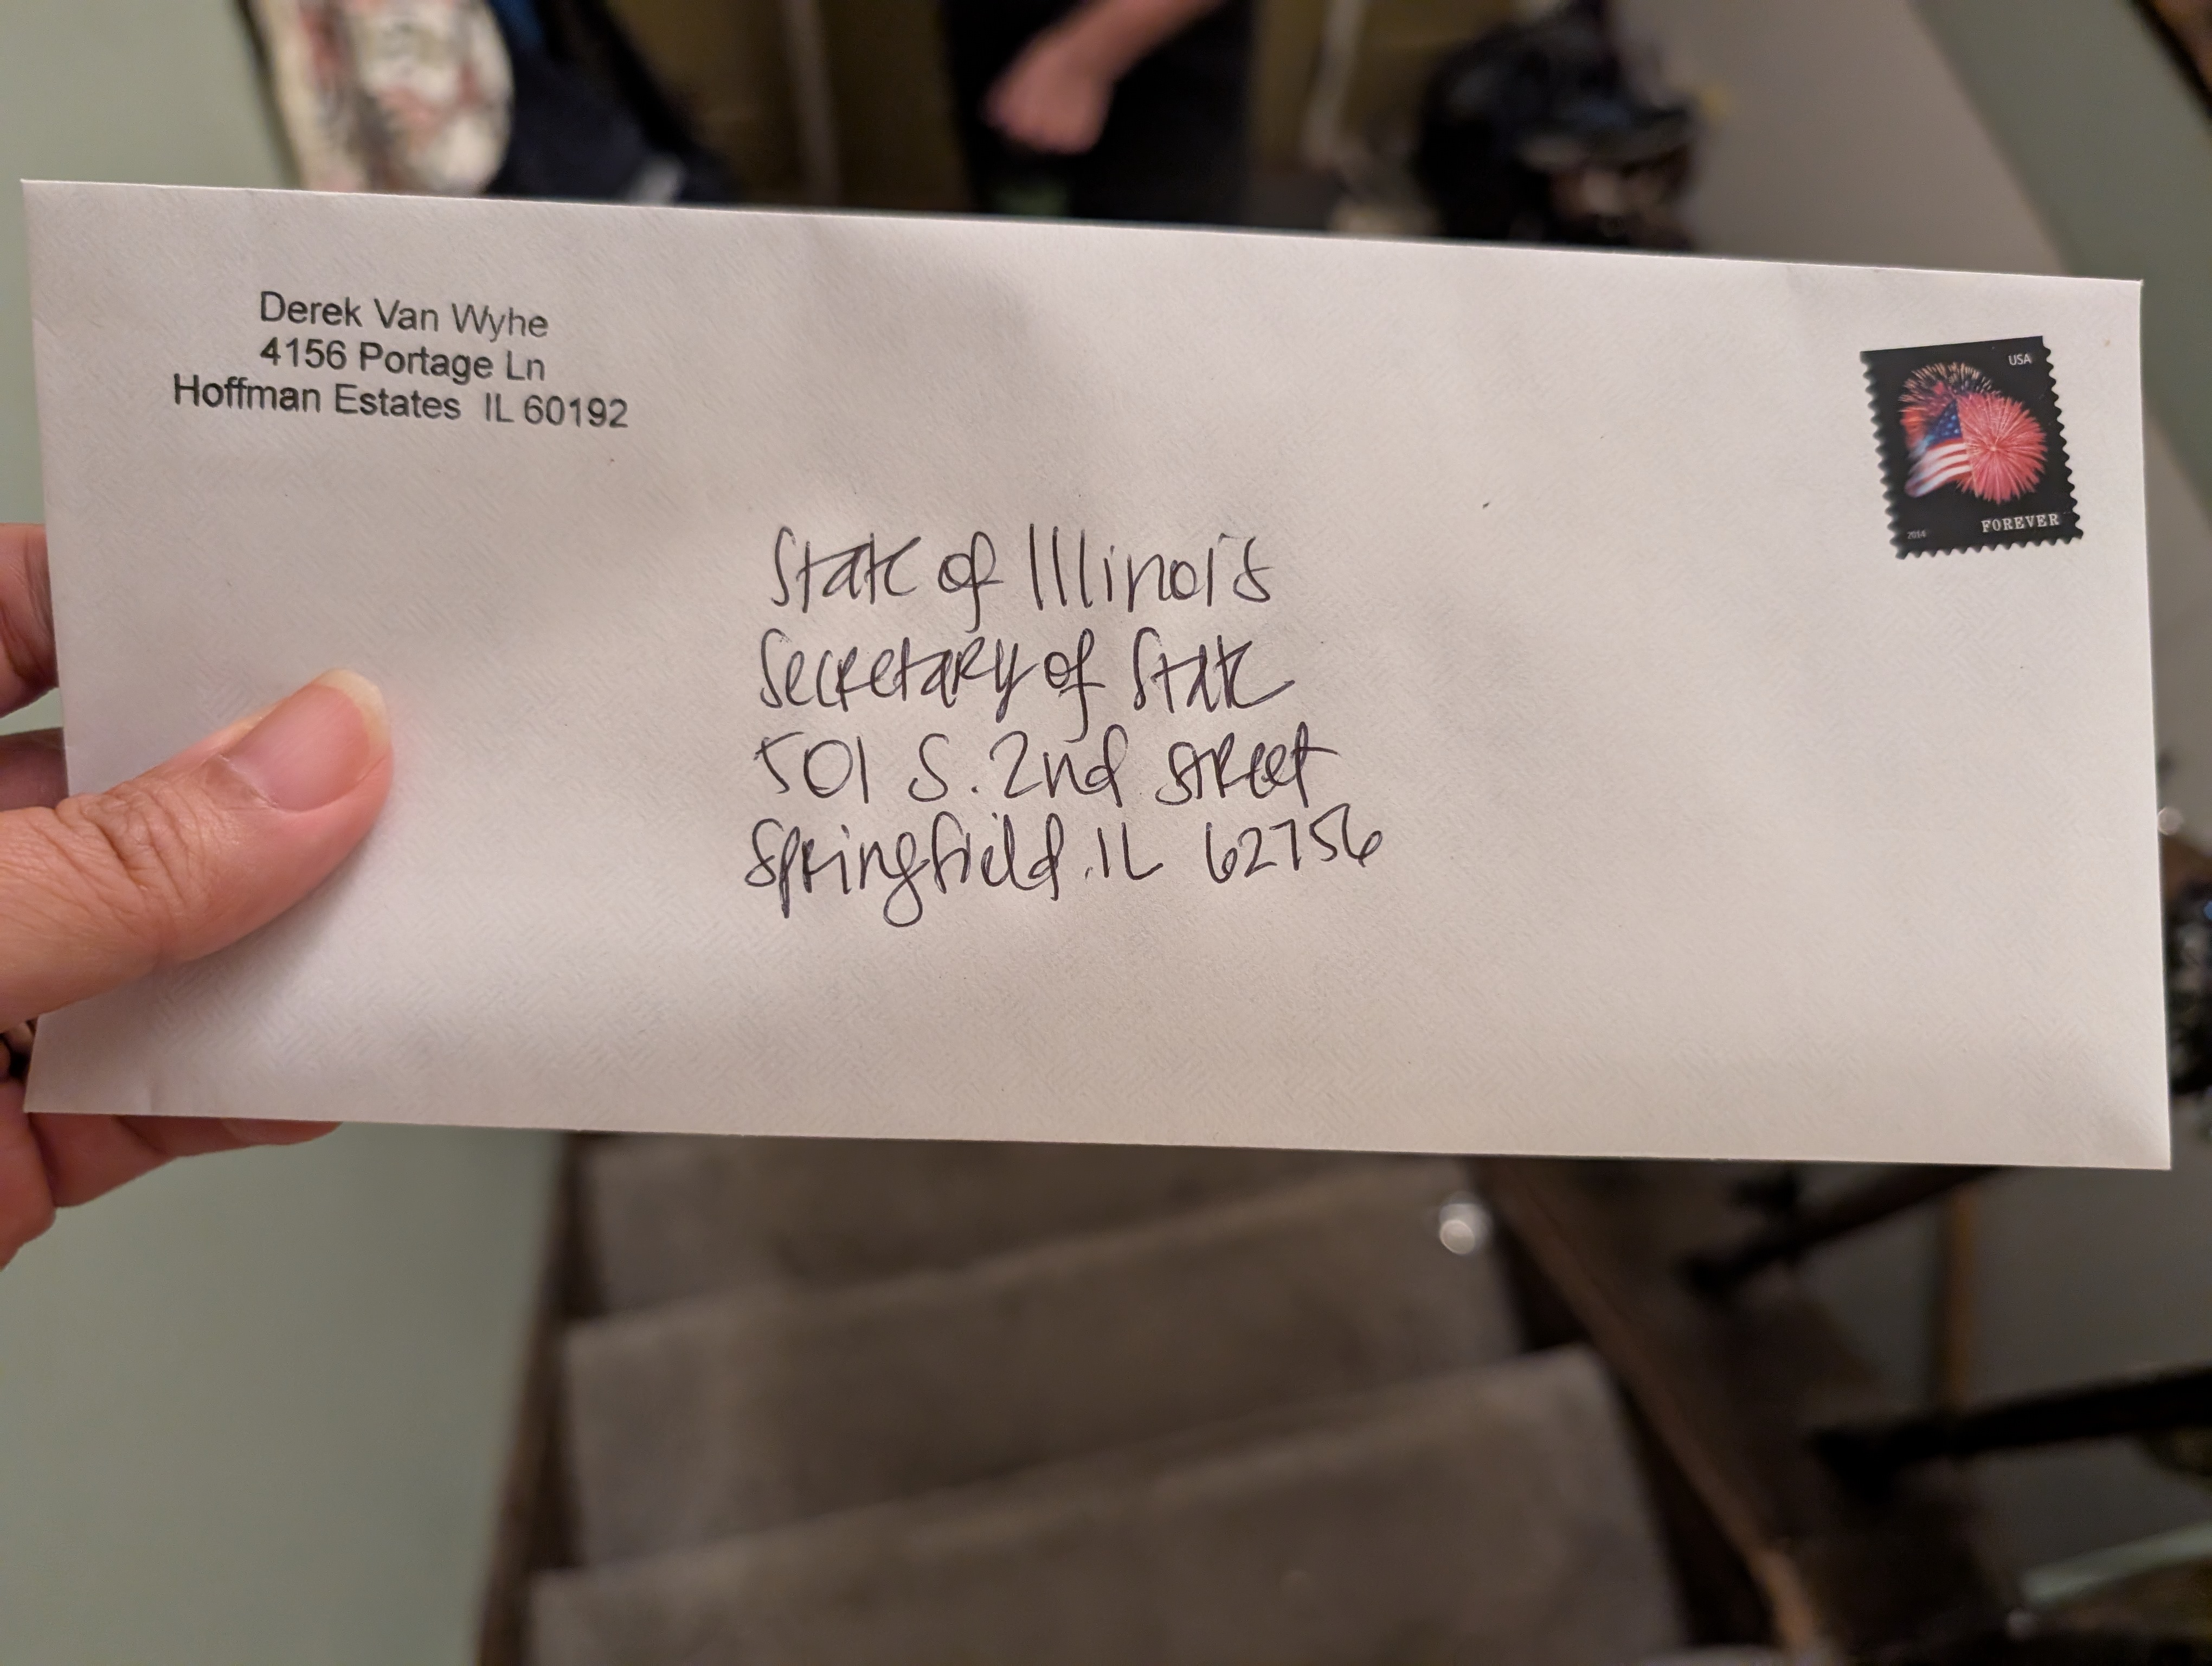 Derek Van Wyhe
4156 Portage Ln
Hoffman Estates IL 60192
USA
FOREVER
2014
State of Illinois
Secretary of State
501 S. 2nd Street
Springfield, IL 62756